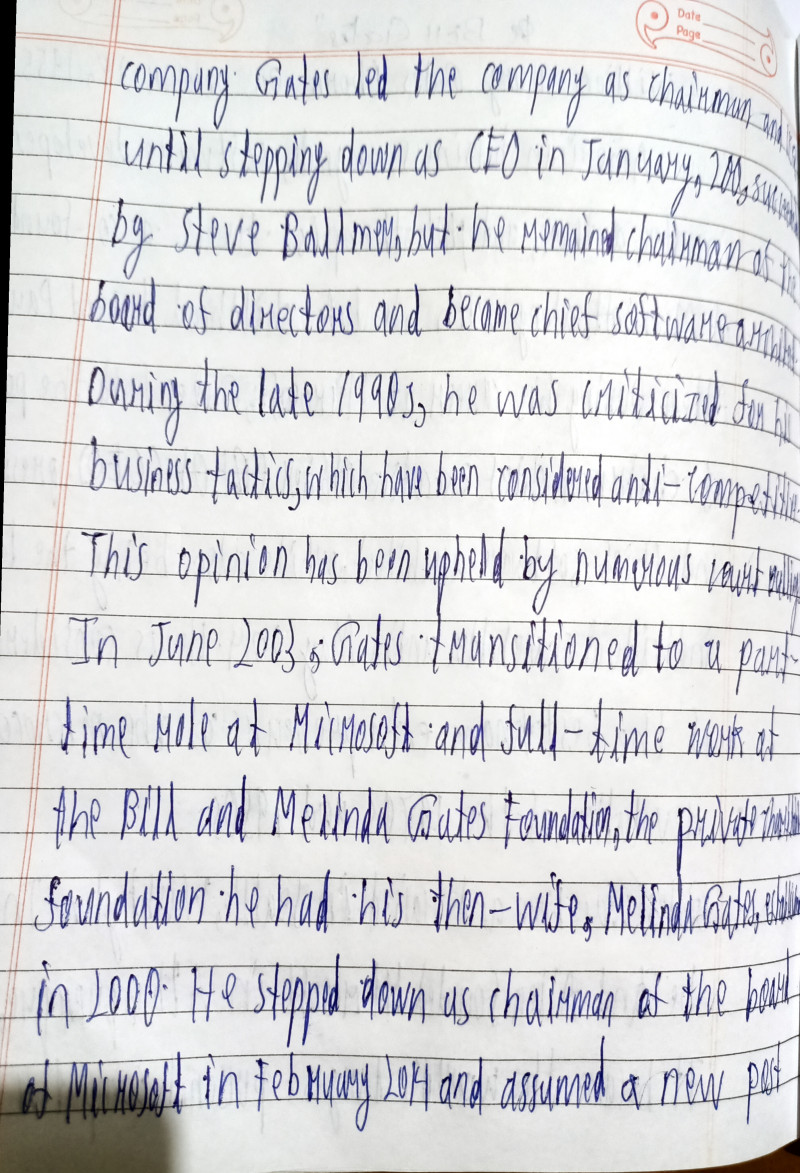 Date
Page
company. Gates led the company as chairman and
until stepping down as CEO in January, 200,
by Steve Ballmer, but he remained chairman of the
board of directors and became chief software
During the late 1990s, he was criticized for his
business tactics, which have been considered anti-competitive
This opinion has been upheld by numerous court
In June 2003, Gates transitioned to a part-
time role at Microsoft and full-time work at
the Bill and Melinda Gates Foundation, the private
foundation he had his then-wife, Melinda Gates,
in 2000. He stepped down as chairman of the board
of Microsoft in February 2014 and assumed a new post